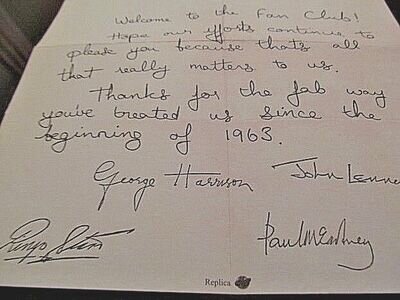 Welcome to the Fan Club!
Hope our efforts continue to
please you because thats all
that really matters to us.
Thanks for the fab way
you've treated us since the
beginning of 1963.
George Harrison
John Lenno
Ringo Starr
Paul McCartney
Replica